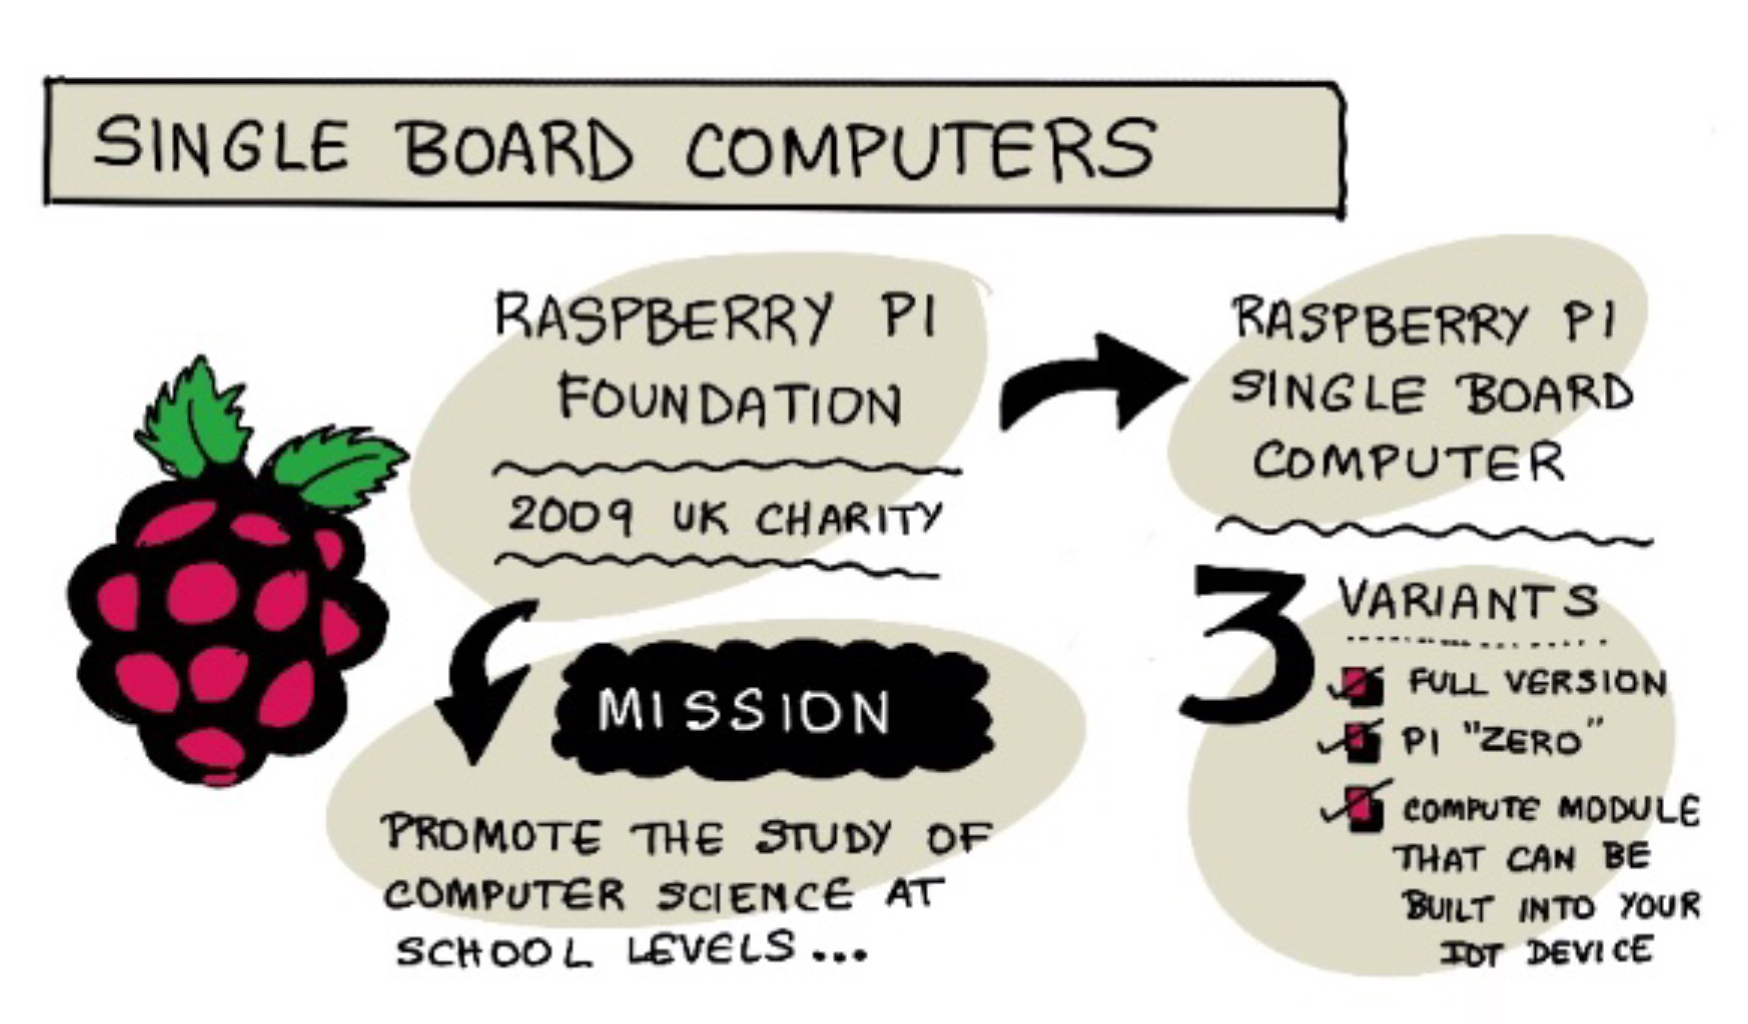 SINGLE BOARD COMPUTERS
RASPBERRY PI
FOUNDATION
2009 UK CHARITY
MISSION
PROMOTE THE STUDY OF
COMPUTER SCIENCE AT
SCHOOL LEVELS...
RASPBERRY PI
SINGLE BOARD
COMPUTER
3 VARIANTS
FULL VERSION
PI "ZERO"
COMPUTE MODULE
THAT CAN BE
BUILT INTO YOUR
IOT DEVICE